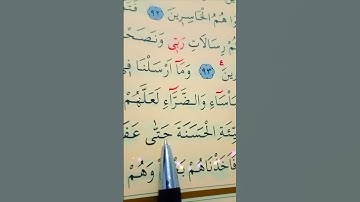 هُمُ الْخَاسِرِينَ ﴿٩٢﴾
رِسَالَاتِ رَبِّي وَنَصَحْ
﴿٩٣﴾ وَمَا أَرْسَلْنَا فِي
بَأْسَاءِ وَالضَّرَّاءِ لَعَلَّهُمْ
الْحَسَنَةَ حَتَّى عَفَ
فَأَخَذْنَاهُمْ وَهُمْ